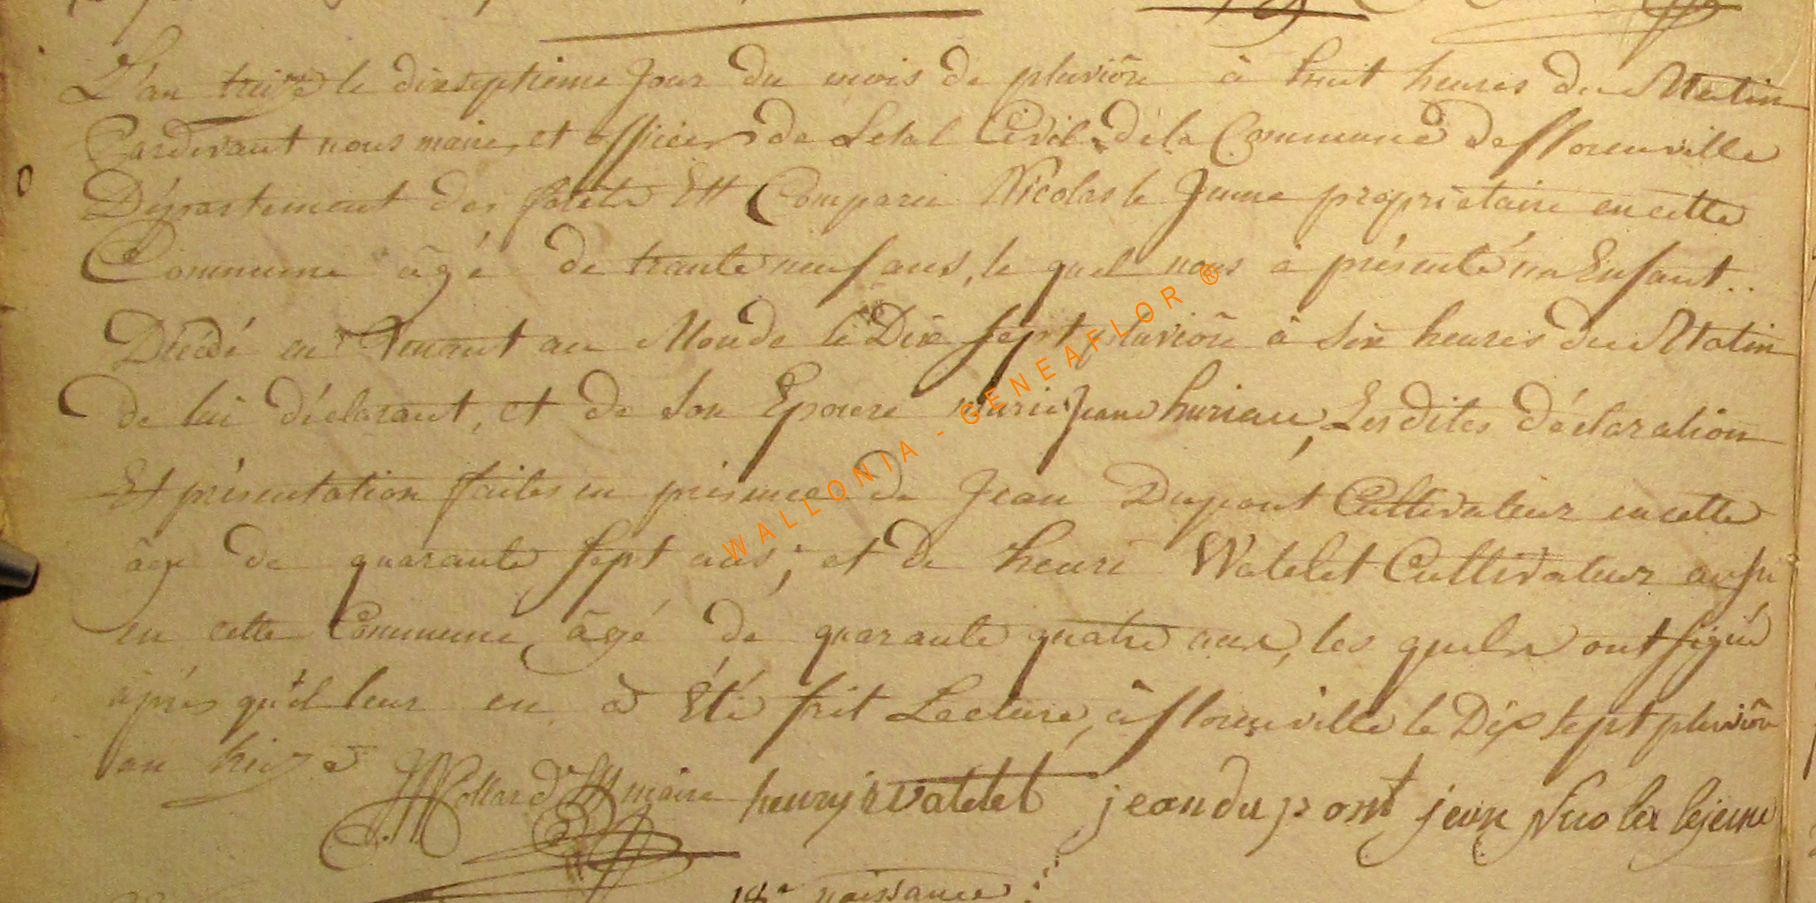 L'an treize le dixseptieme Jour du mois de pluviôse à huit heures du Matin
Pardevant nous maire et officier de Letat Civil de la Commune de florenville
Département des forêts Est Comparu Nicolas le Jeune proprietaire en cette
Commune âgé de trante neuf ans, le quel nous a présenté un Enfant..
Décédé en Venant au Monde le Dix sept pluviôse à six heures du Matin
de lui déclarant, et de son Epouse marie Jeane huriau, Les dites déclaration
Et présentation faites en présence de Jean Dupont Cultivateur en cette
âge de quarante sept ans, et de henri Watelet Cultivateur aussi
en cette Commune, âgé de quarante quatre ans, les quels ont signé
après qu'il leur en a Été fait Lecture, à florenville le Dix sept pluviôse
an treize
Collard maire henry watelet jean dupont jean Nicolas lejeune
18e naissance
WALLONIA - GENEAFLOR ®